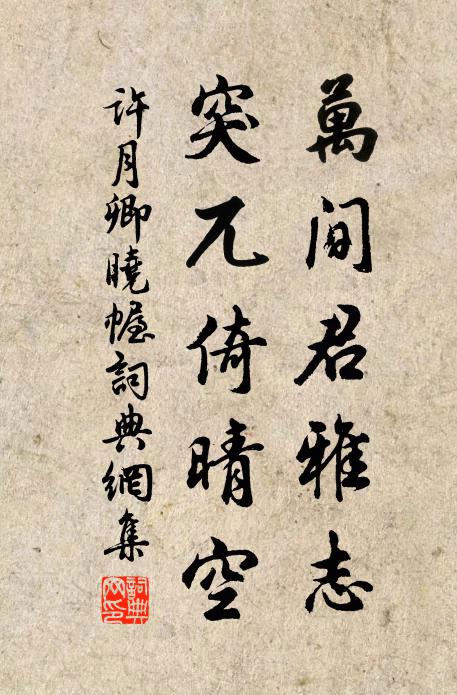 萬間君雅志
突兀倚晴空
許月卿曉幄詞典網集
詞典網印